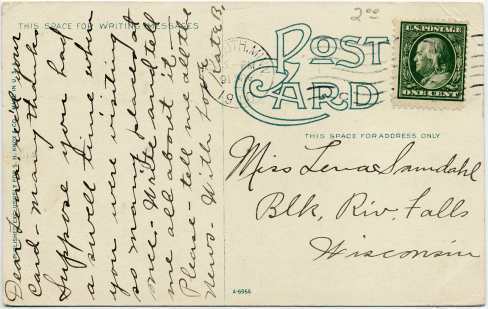 THIS SPACE FOR WRITING MESSAGES
Dear Lena - Rec'd your
card - many thanks
Suppose you had
a swell time when
you were visiting
so many places at
once. Write and tell
me all about it -
Please - tell me all the
News. With love
Kate B.
2.00
POST
CARD
U.S. POSTAGE
ONE CENT
THIS SPACE FOR ADDRESS ONLY
Miss Lena Samdahl
Blk. Riv. Falls
Wisconsin
A-6966